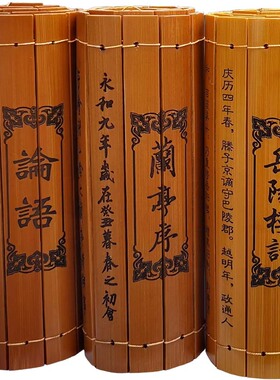 論語
蘭亭序
永和九年歲在癸丑暮春之初會
岳陽樓記
庆历四年春，滕子京谪守巴陵郡。越明年，政通人